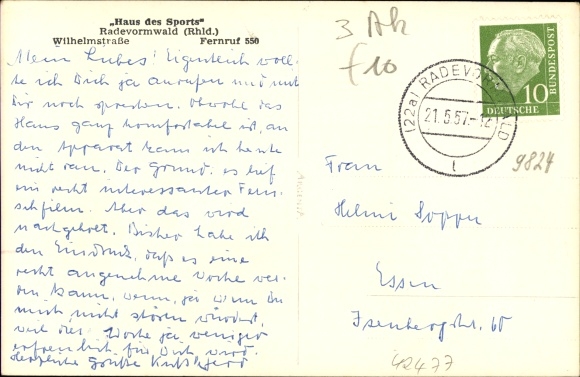 „Haus des Sports"
Radevormwald (Rhld.)
Wilhelmstraße Fernruf 550
Mein Liebes! Eigentlich woll-
te ich Dich ja anrufen und mit
Dir noch sprechen. Obwohl das
Haus ganz komfortabel ist, an
den Apparat kann ich heute
nicht ran. Der Grund: es lief
ein recht interessanter Fern-
sehfilm. Aber das wird
nachgeholt. Bisher habe ich
den Eindruck, daß es eine
recht angenehme Woche wer-
den kann, wenn, ja wenn Du
mich nicht stören würdest,
weil die Woche ja weniger
erfreulich für Dich wird.
Herzliche Grüße Kuß
3 Ak
f10
DEUTSCHE BUNDESPOST
10
(22a) RADEVORMWALD
21.6.57.-12
l
9824
Frau
Helmi Soppe
Essen
Isenbergstr. 60
42477